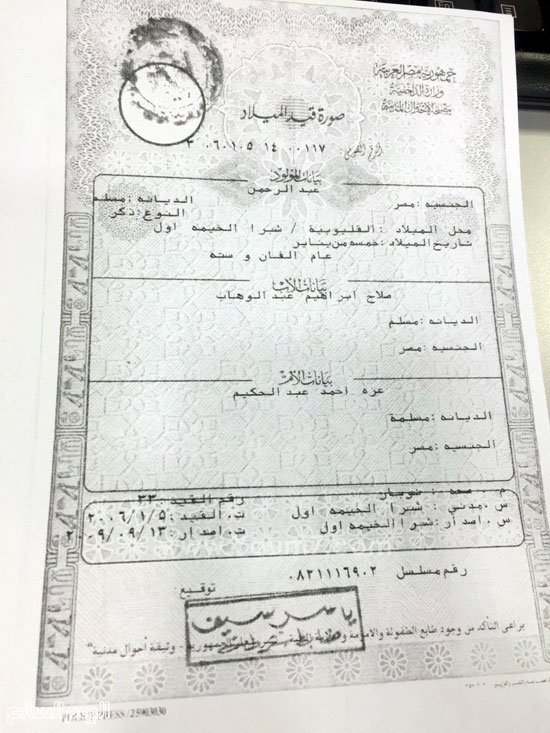 جمهورية مصر العربية
وزارة الداخلية
مصلحة الأحوال المدنية
صورة قيد الميلاد
الرقم القومى: ٣٠٦٠١٠٥١٤٠٠١١٧
بيانات المولود
عبد الرحمن
الجنسيه :مصر الديانه :مسلم
النوع :ذكر
محل الميلاد :القليوبية / شبرا الخيمه اول
تاريخ الميلاد :خمسه من يناير
عام الفان و سته
بيانات الأب
صلاح ابراهيم عبد الوهاب
الديانه :مسلم
الجنسيه :مصر
بيانات الأم
عزه احمد عبد الحكيم
الديانه :مسلمة
الجنسيه :مصر
م. صحه : رقم القيد :٣٣
س.مدني : شبرا الخيمه اول ت.القيد :٢٠٠٦/١/٥
س.اصدار :شبرا الخيمه اول ت.اصدار :٢٠٠٩/٠٩/١٣
رقم مسلسل ٠٨٢١١١٦٩٠٢
توقيع
ياسر سيف
يراعى التأكد من وجود طابع الطفولة والأمومة - وثيقة أحوال مدنية"
اليوم السابع
POLICE PRESS / 25903030